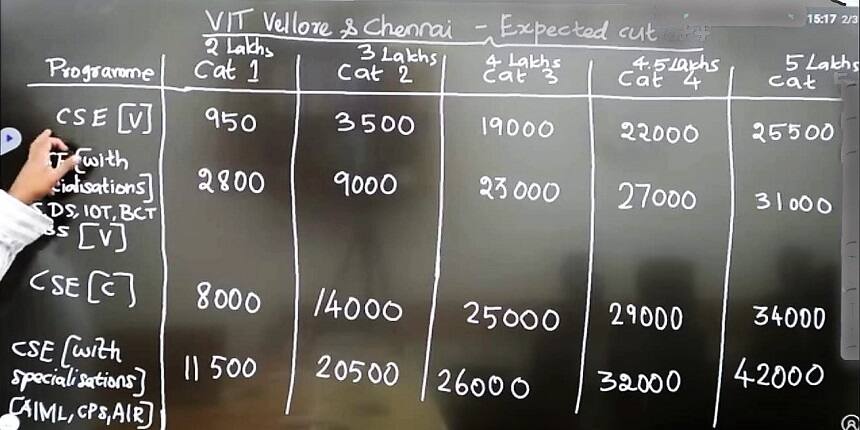 VIT Vellore & Chennai - Expected cut
15:17 2/3
2 Lakhs 3 Lakhs 4 Lakhs 4.5 Lakhs 5 Lakhs
Programme Cat 1 Cat 2 Cat 3 Cat 4 Cat
CSE [V] 950 3500 19000 22000 25500
[with
ialisations] 2800 9000 23000 27000 31000
DS, IOT, BCT
BS [V]
CSE [C] 8000 14000 25000 29000 34000
CSE [with
specialisations] 11500 20500 26000 32000 42000
[AIML, CPS, AIR]